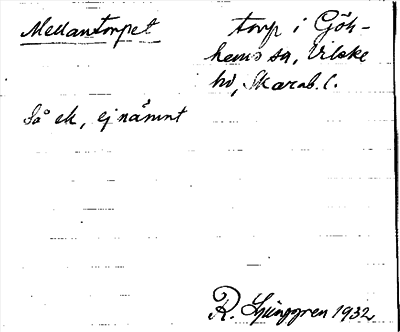 Mellantorpet
torp i Gök-
hems sn, Vilske
hd, Skarab. l.
Så ek, ej nämnt
R. Ljunggren 1932